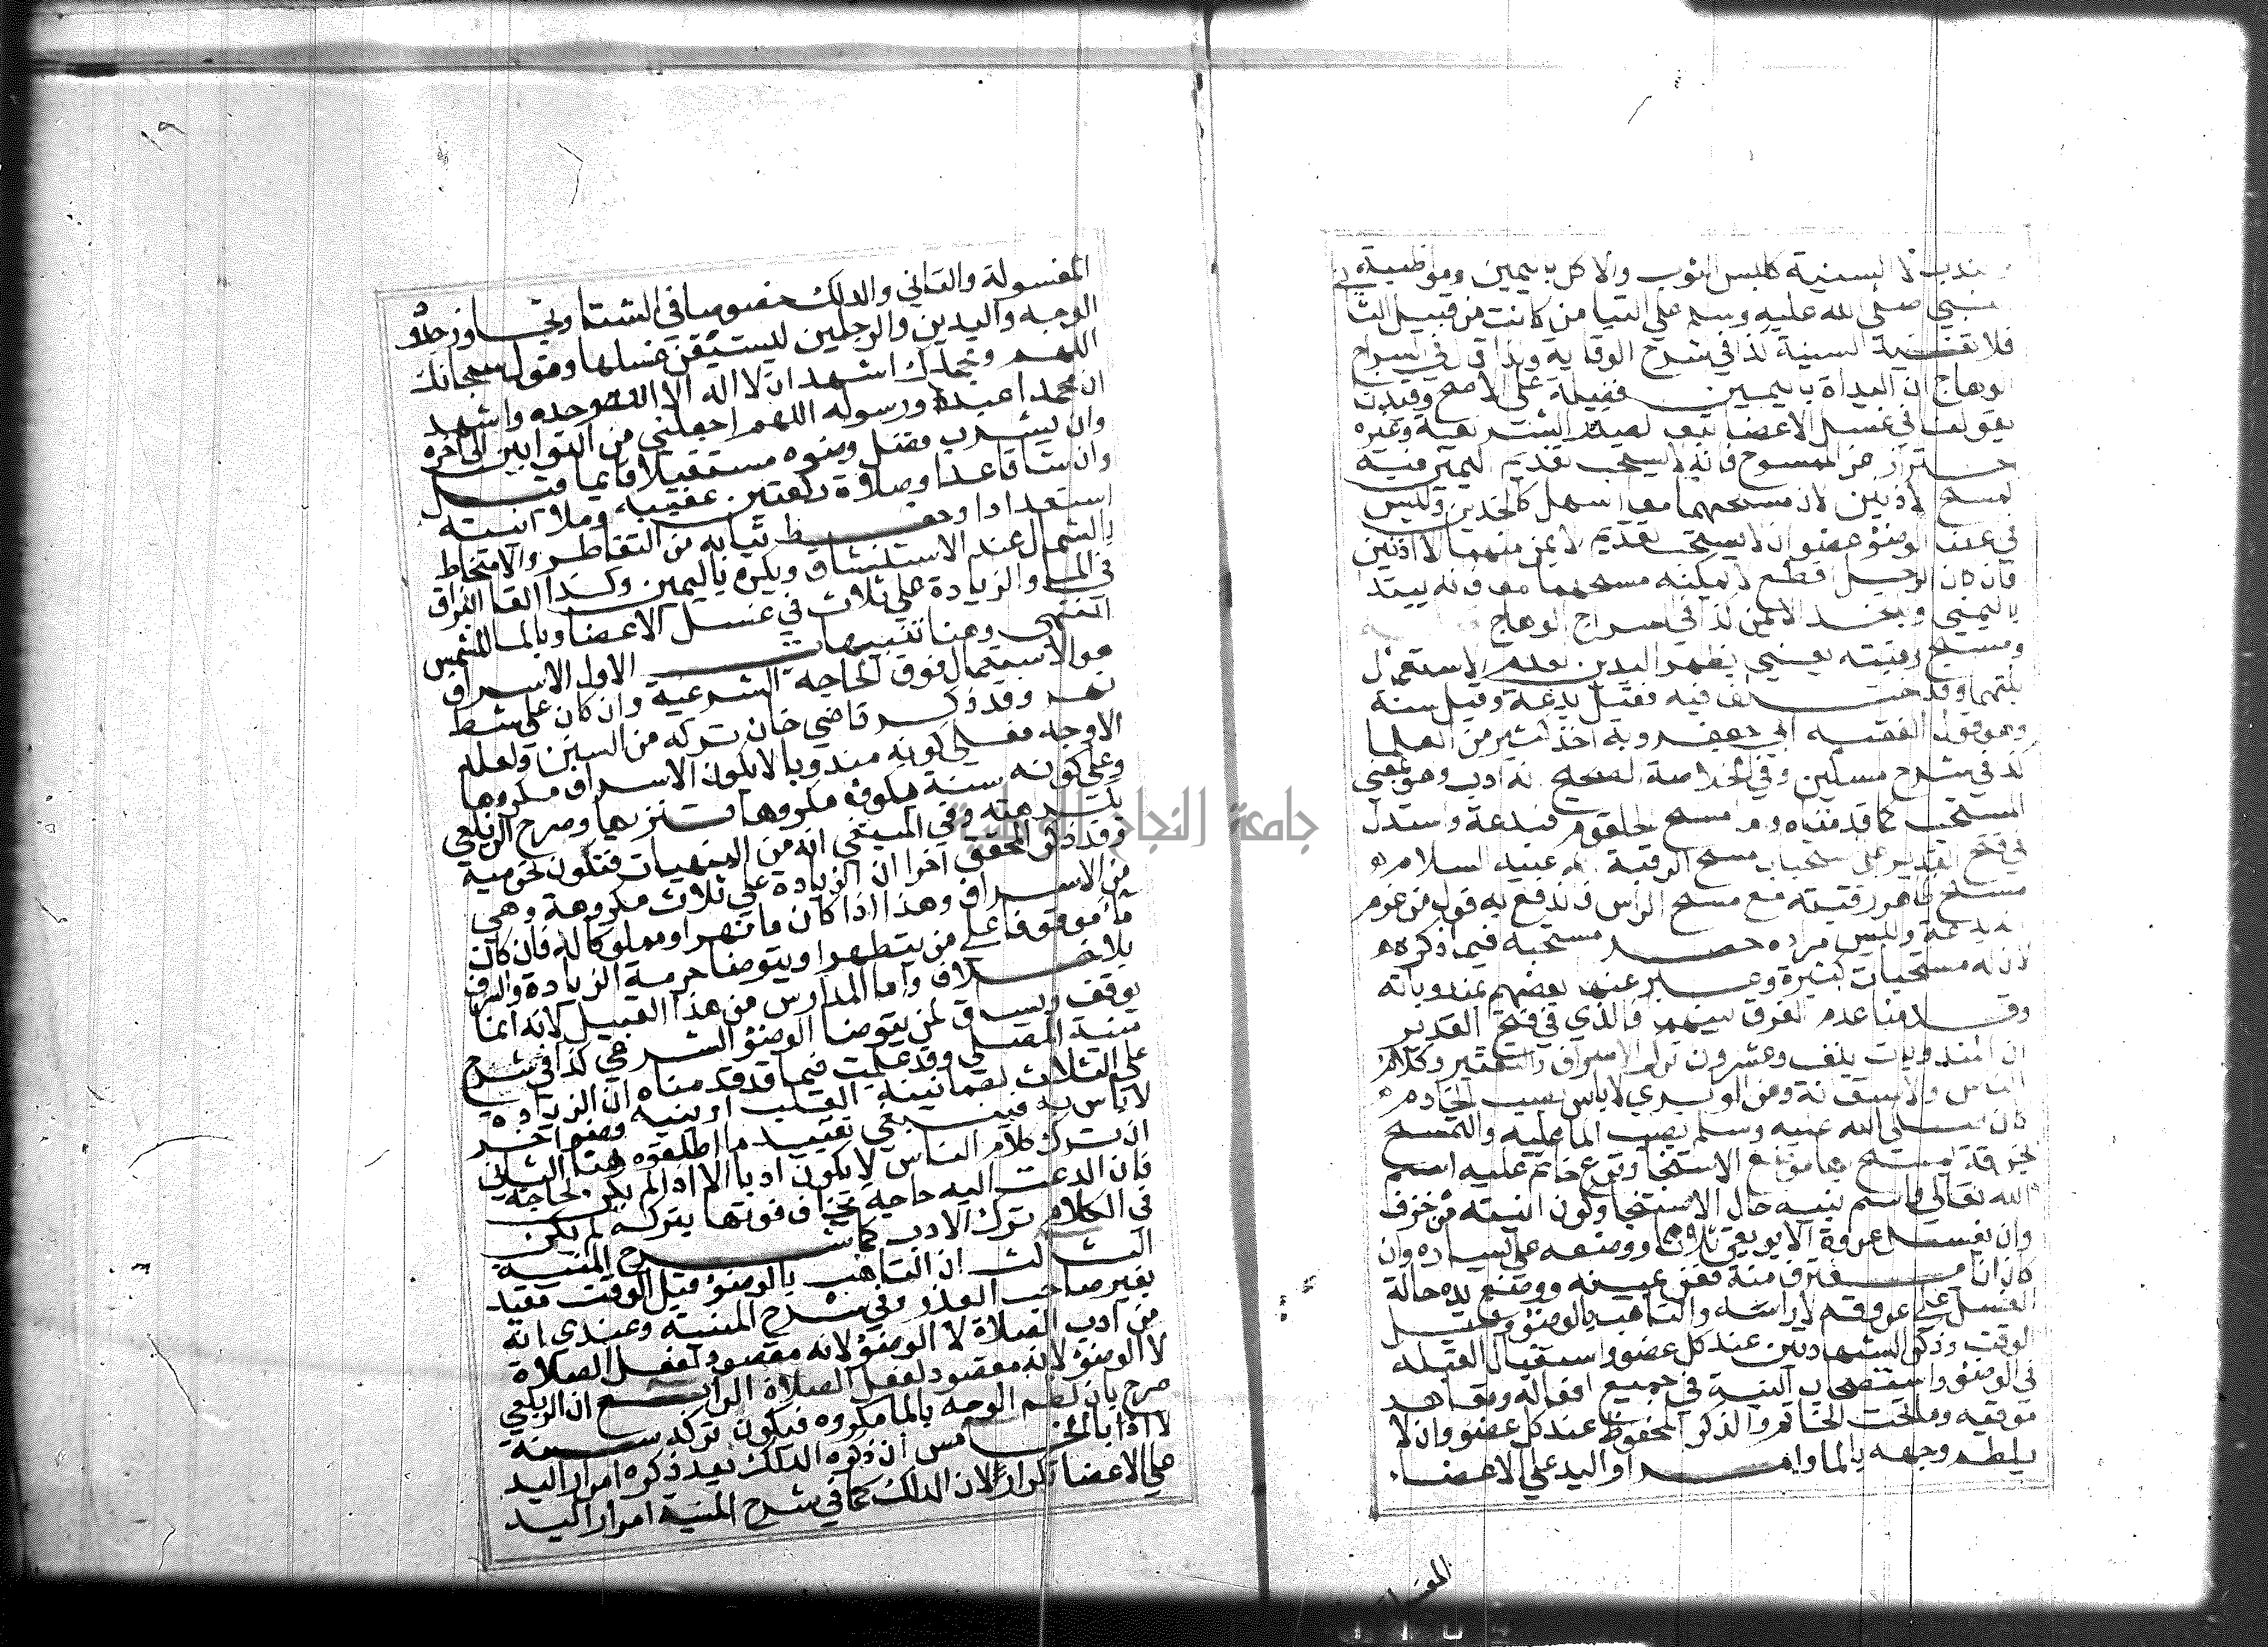 الندب لا السنية كلبس الثوب والاكل باليمين ومواظبة
النبي صلى الله عليه وسلم على التيامن كانت من قبيل الثا
فلا تفيد السنية كذا في شرح الوقاية وكذا قال في السراج
الوهاج ان البداة باليمين فضيلة على الاصح وقيدت
بقولنا في غسل الاعضا تبعا لصدر الشريعة وغيره
احترازا عن الممسوح فانه لا يستحب تقديم اليمين فيه
كمسح الاذنين لان مسحهما معا اسهل كالخدين وليس
في اعضا الوضوء عضوان لا يستحب تقديم الايمن منهما الا الاذنين
فان كان الرجل اقطع لا يمكنه مسحهما معا فانه يبتدا
باليمنى وبالخد الايمن كذا في السراج الوهاج
ومسح رقبته يعني بظهر اليدين لعدم الاستعمال
بلتهما وقد اختلف فيه فقيل بدعة وقيل سنة
وهو قول الفقيه ابي جعفر وبه اخذ كثير من العلما
كذا في شرح مسكين وفي الخلاصة الصحيح انه ادب وهو بمعنى
المستحب كما قدمناه واما مسح الحلقوم فبدعة واستدل
في فتح القدير على استحباب مسح الرقبة انه عليه السلام
مسح ظاهر رقبته مع مسح الراس فاندفع به قول من زعم
انه بدعة وليس مراده حصر مستحبه فيما ذكره
لان له مستحبات كثيرة وعبر عنها بعضهم بمندوباته
وقد قدمنا عدم الفرق بينهما فالذي في فتح القدير
ان المندوبات نيف وعشرون ترك الاسراف والتقتير وكلام
الناس والاستعانة وعن الوبري لا باس بصب الخادم
كان صلى الله عليه وسلم يصب الما عليه والتمسح
بخرقة يمسح بها موضع الاستنجا ونزع خاتم عليه اسم
الله تعالى واسم نبيه حال الاستنجا وكون انيته من خزف
وان يغسل عروة الابريق ثلاثا ووضعه على يساره وان
كان انا يغترف منه فعن يمينه ووضع يده حالة
الغسل على عروقه لا راسه والتاهب بالوضوء قبل
الوقت وذكر الشهادتين عند كل عضو واستقبال القبلة
في الوضوء واستصحاب النية في جميع افعاله وتعاهد
موقيه وما تحت الخاتم والذكر المحفوظ عند كل عضو وان لا
يلطم وجهه بالما وامرار اليد على الاعضا
المغسولة
المغسولة والتاني والدلك خصوصا في الشتا وتجاوز حدو
الوجه واليدين والرجلين ليستيقن غسلها وقول سبحانك
اللهم وبحمدك اشهد ان لا اله الا الله وحده واشهد
ان محمدا عبده ورسوله اللهم اجعلني من التوابين الى اخره
وان يشرب فضل وضوه مستقبلا قايما قيل
وان شا قاعدا وصلاة ركعتين عقيبه وملا انيته
استعدادا وحفظ ثيابه من التقاطر والامتخاط
بالشمال عند الاستنشاق ويكره باليمين وكذا القا البزاق
في الما والزيادة على ثلاث في غسل الاعضا وبالما المشمس
انتهى وهنا تنبيهات الاول الاسراف
هو الاستعمال فوق الحاجة الشرعية وان كان على شط
نهر وقد ذكر قاضي خان تركه من السنن ولعله
الاوجه فعلى كونه مندوبا لا يكون الاسراف مكروها
وعلى كونه سنة يكون مكروها تنزيها وصرح الزيلعي
بكراهته وفي المبتغى انه من المنهيات فتكون تحريمية
وقد ذكر المحقق اخرا ان الزيادة على ثلاث مكروهة وهي
من الاسراف وهذا اذا كان ما نهر او مملوكا له فان كان
ما موقوفا على من يتطهر او يتوضا حرمة الزيادة والسرف
بلا خلاف واما المدارس من هذا القبيل لانه انما
يوقف ويساق لمن يتوضا الوضوء الشرعي كذا في شرح
منية المصلي وقد علمت فيما قدمناه ان الزيادة
على الثلاث لطمانينة القلب او بنية وضو اخر
لا باس به فينبغي تقييد ما اطلقوه هنا الثاني
ان ترك كلام الناس لا يكون ادبا الا اذا لم يكن لحاجة
فان الدعت اليه حاجة يخاف فوتها بتركه لم يكن
في الكلام ترك الادب كما شرح المنية
الثالث ان التاهب بالوضوء قبل الوقت مقيد
بغير صاحب العذر وفي شرح المنية وعندي انه
من اداب الصلاة لا الوضوء لانه مقصود لفعل الصلاة
لا الوضوء لانه مقصود لفعل الصلاة الرابع ان الزيلعي
صرح بان لطم الوجه بالما مكروه فيكون تركه سنة
لا ادبا الخامس ان ذكره الدلك بعد ذكره امرار اليد
على الاعضا تكرار لان الدلك كما في شرح المنية امرار اليد
١٩
جامعة النجاح الوطنية